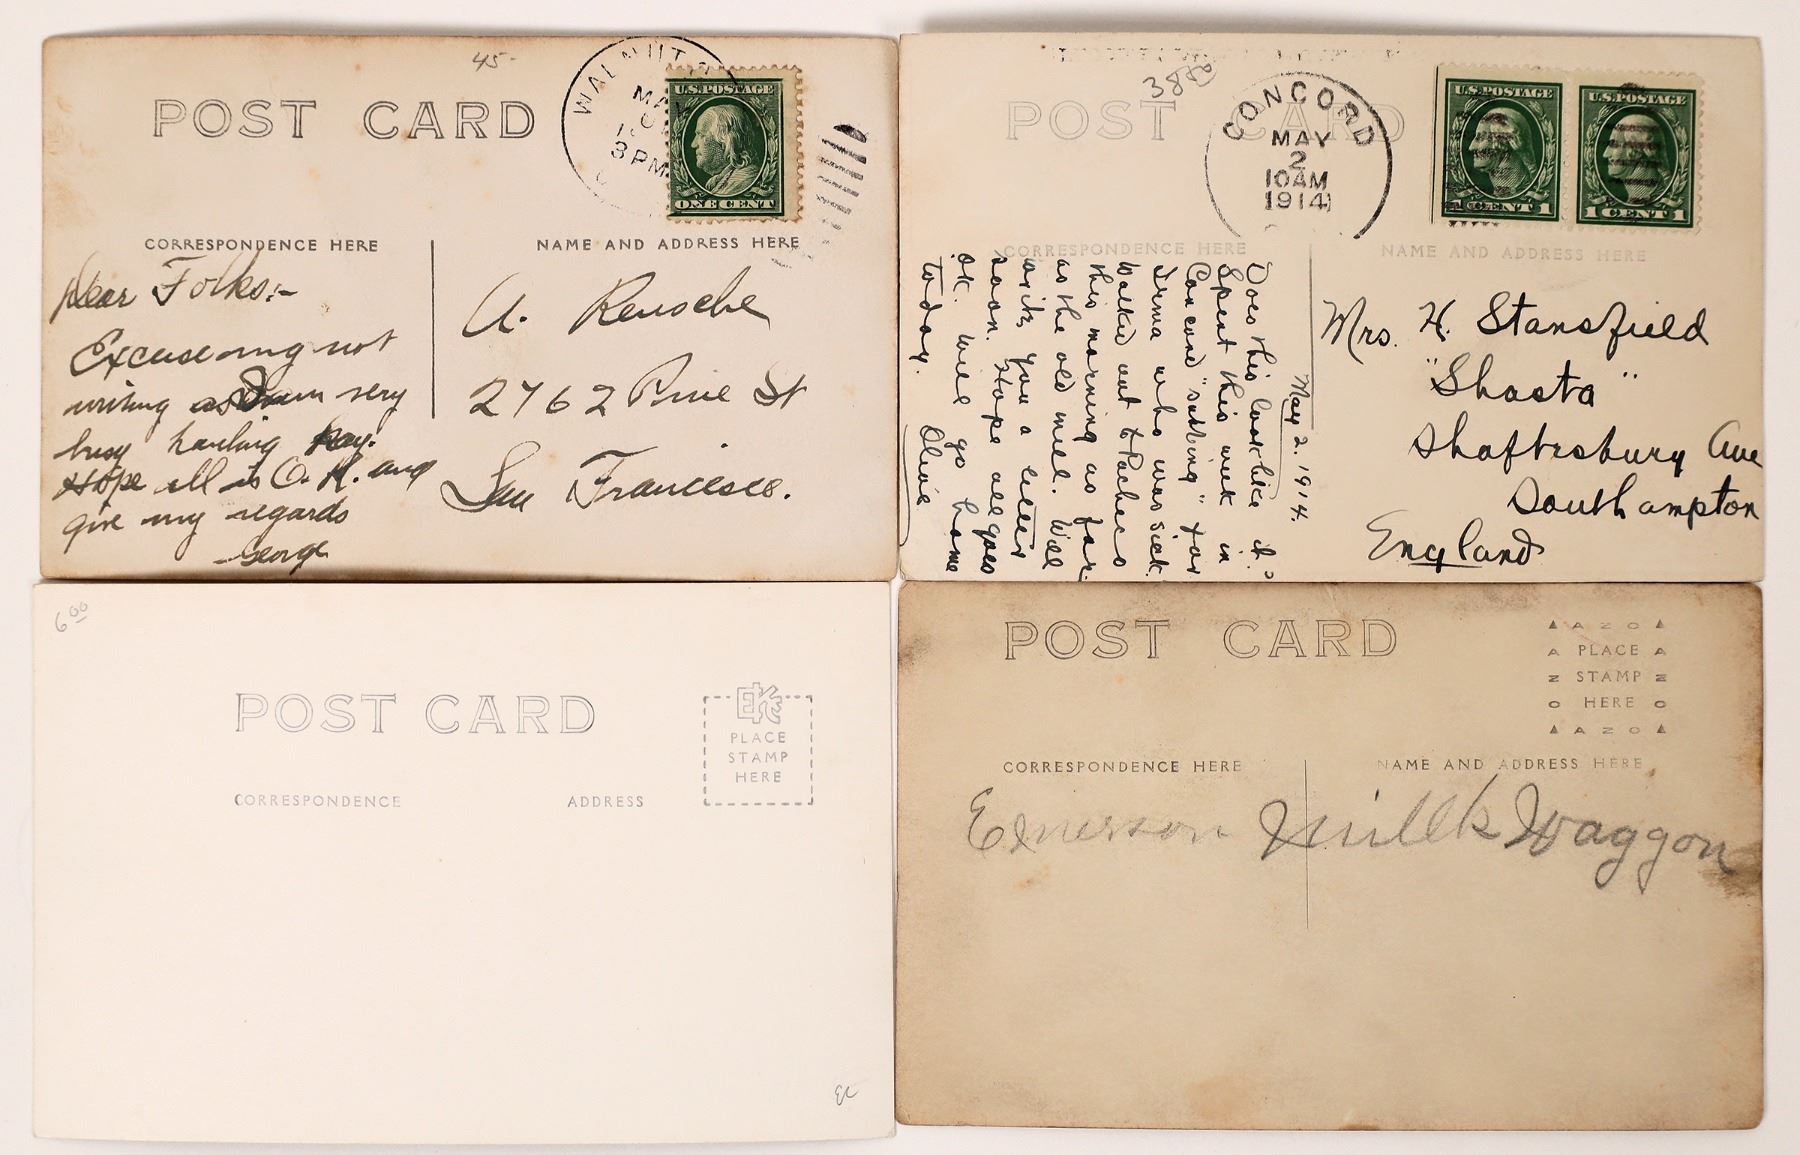 45-
POST CARD
WALNUT
MAY
3 PM
U.S. POSTAGE
ONE CENT
CORRESPONDENCE HERE
NAME AND ADDRESS HERE
Dear Folks:-
Excuse my not
writing as I am very
busy hauling Hay.
Hope all is O.K. and
give my regards
-George
A. Reusche
2762 Pine St
San Francisco.
POST CARD
CONCORD
MAY
2
10 AM
1914
U.S. POSTAGE
1 CENT 1
U.S. POSTAGE
1 CENT 1
CORRESPONDENCE HERE
NAME AND ADDRESS HERE
May 2. 1914.
Does this look like it?
Spent this week in
Concord "subbing" for
Irma who was sick.
Walked out to Pacheco
this morning as far
as the old mill. Will
write you a letter
soon. Hope all goes
ok. Will go home
today. Olive
Mrs. H. Stansfield
"Shasta"
Shaftesbury Ave
Southampton
England
6.00
POST CARD
EKC
PLACE
STAMP
HERE
CORRESPONDENCE
ADDRESS
POST CARD
AZO
PLACE
STAMP
HERE
AZO
CORRESPONDENCE HERE
NAME AND ADDRESS HERE
Emerson Millk Waggon